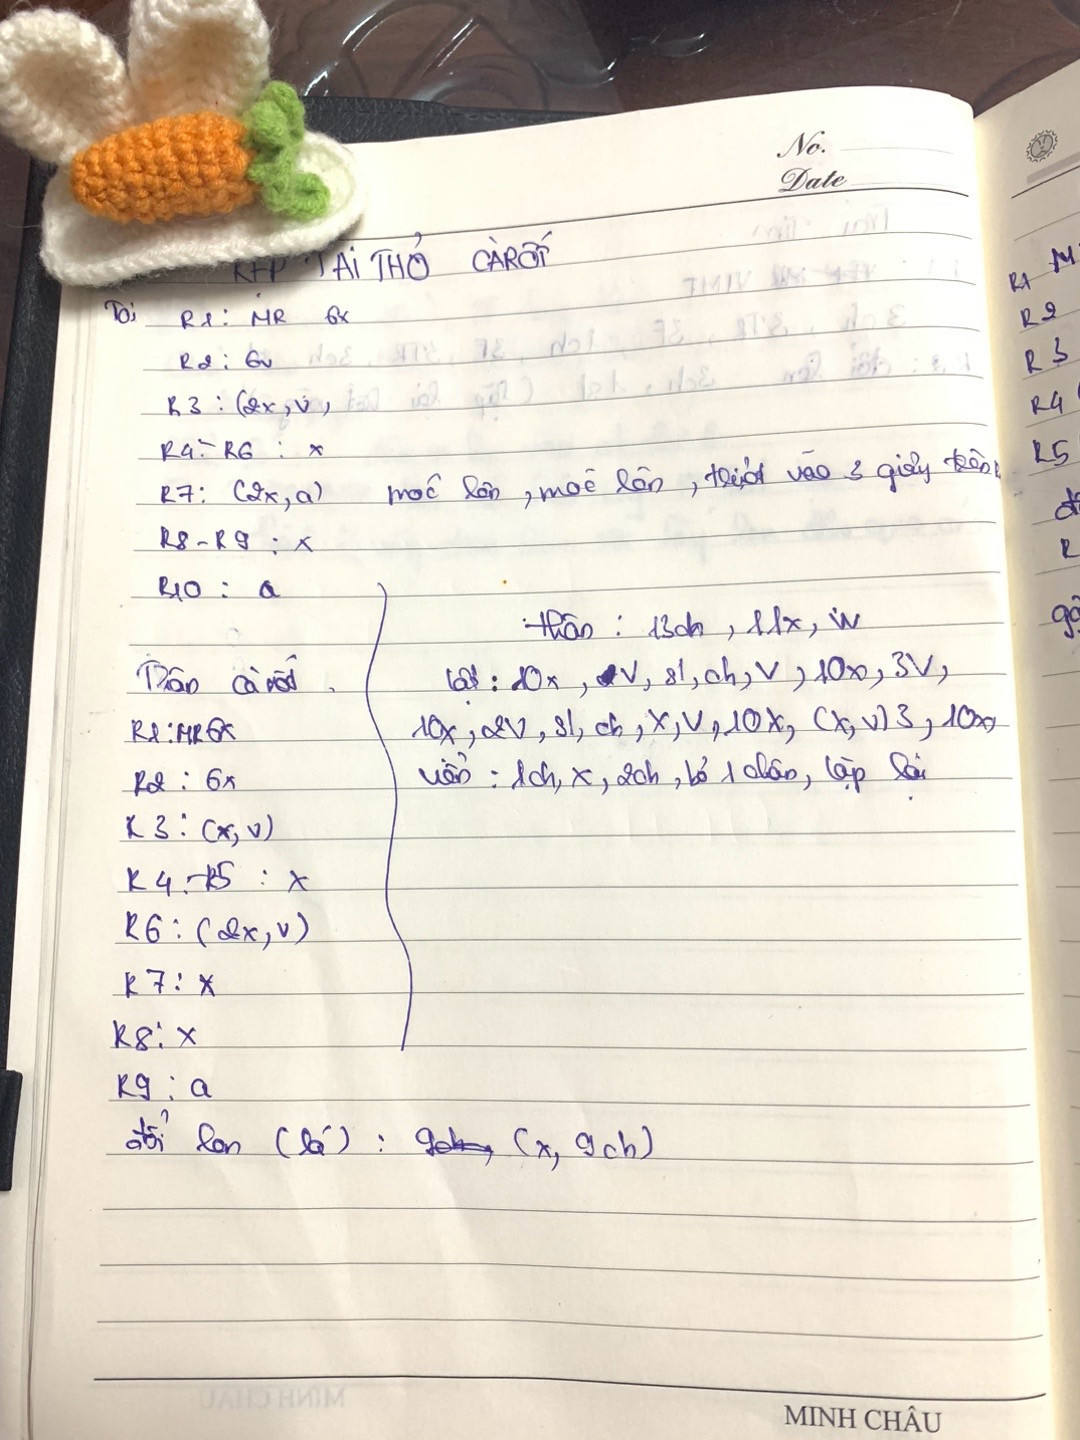 No.
Date
KẸP TAI THỎ CÀ RỐT
Tai R1: MR 6x
R2: 6v
R3: (2x, v,
R4 - R6 : x
R7: (2x, a) móc lên, móc lên, trượt vào 3 giây
R8 - R9 : x
R10 : a
Thân cà rốt.
R1: MR 6x
R2 : 6x
R3 : (x, v)
R4 - R5 : x
R6 : (2x, v)
R7 : x
R8: x
R9 : a
đổi len (lá) : 9ch, (x, 9ch)
thân : 13ch, 11x, w
lật : 10x, V, sl, ch, V, 10x, 3V,
10x, 2V, sl, ch, X, V, 10X, (x, v) 3, 10x,
viền : 1ch, x, 2ch, bỏ 1 chân, lặp lại
R1
R2
R3
R4
R5
R
MINH CHÂU